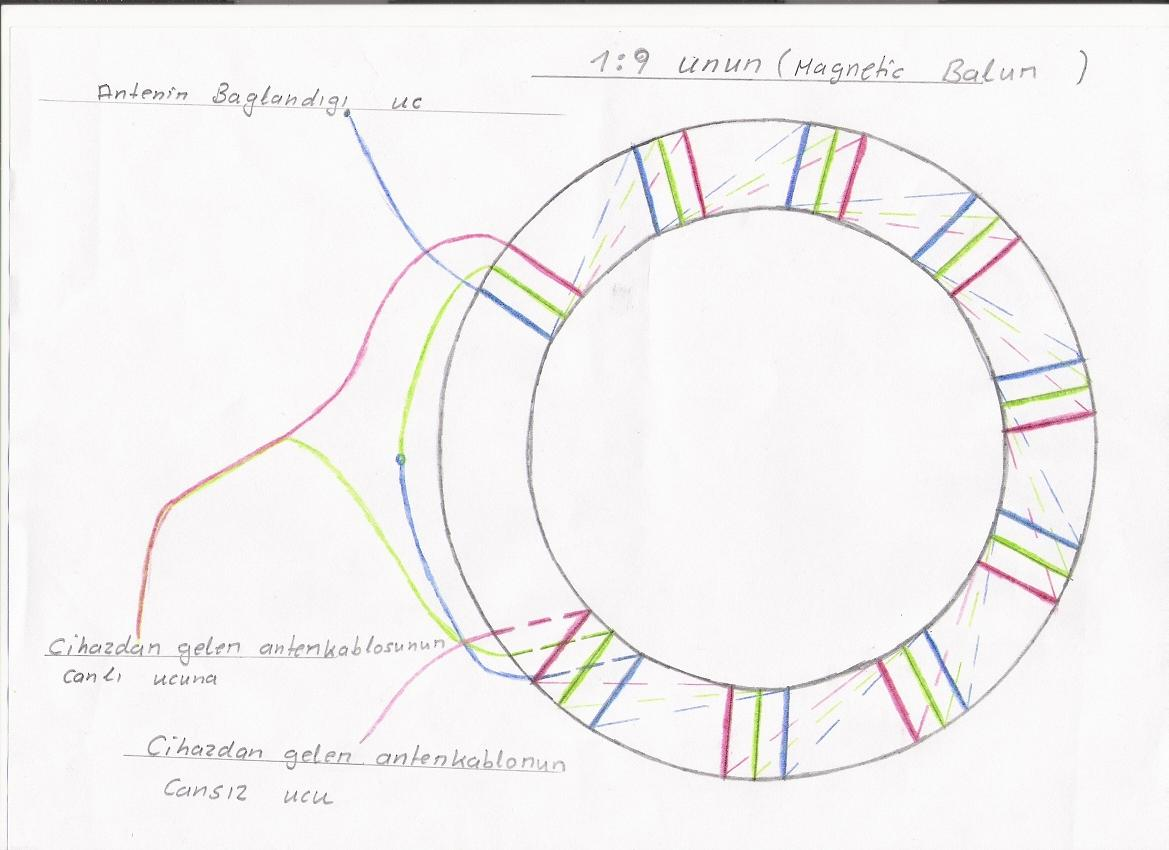 1:9 unun (Magnetic Balun )
Antenin Baglandıgı uc
Cihazdan gelen antenkablosunun
canlı ucuna
Cihazdan gelen antenkablonun
Cansız ucu